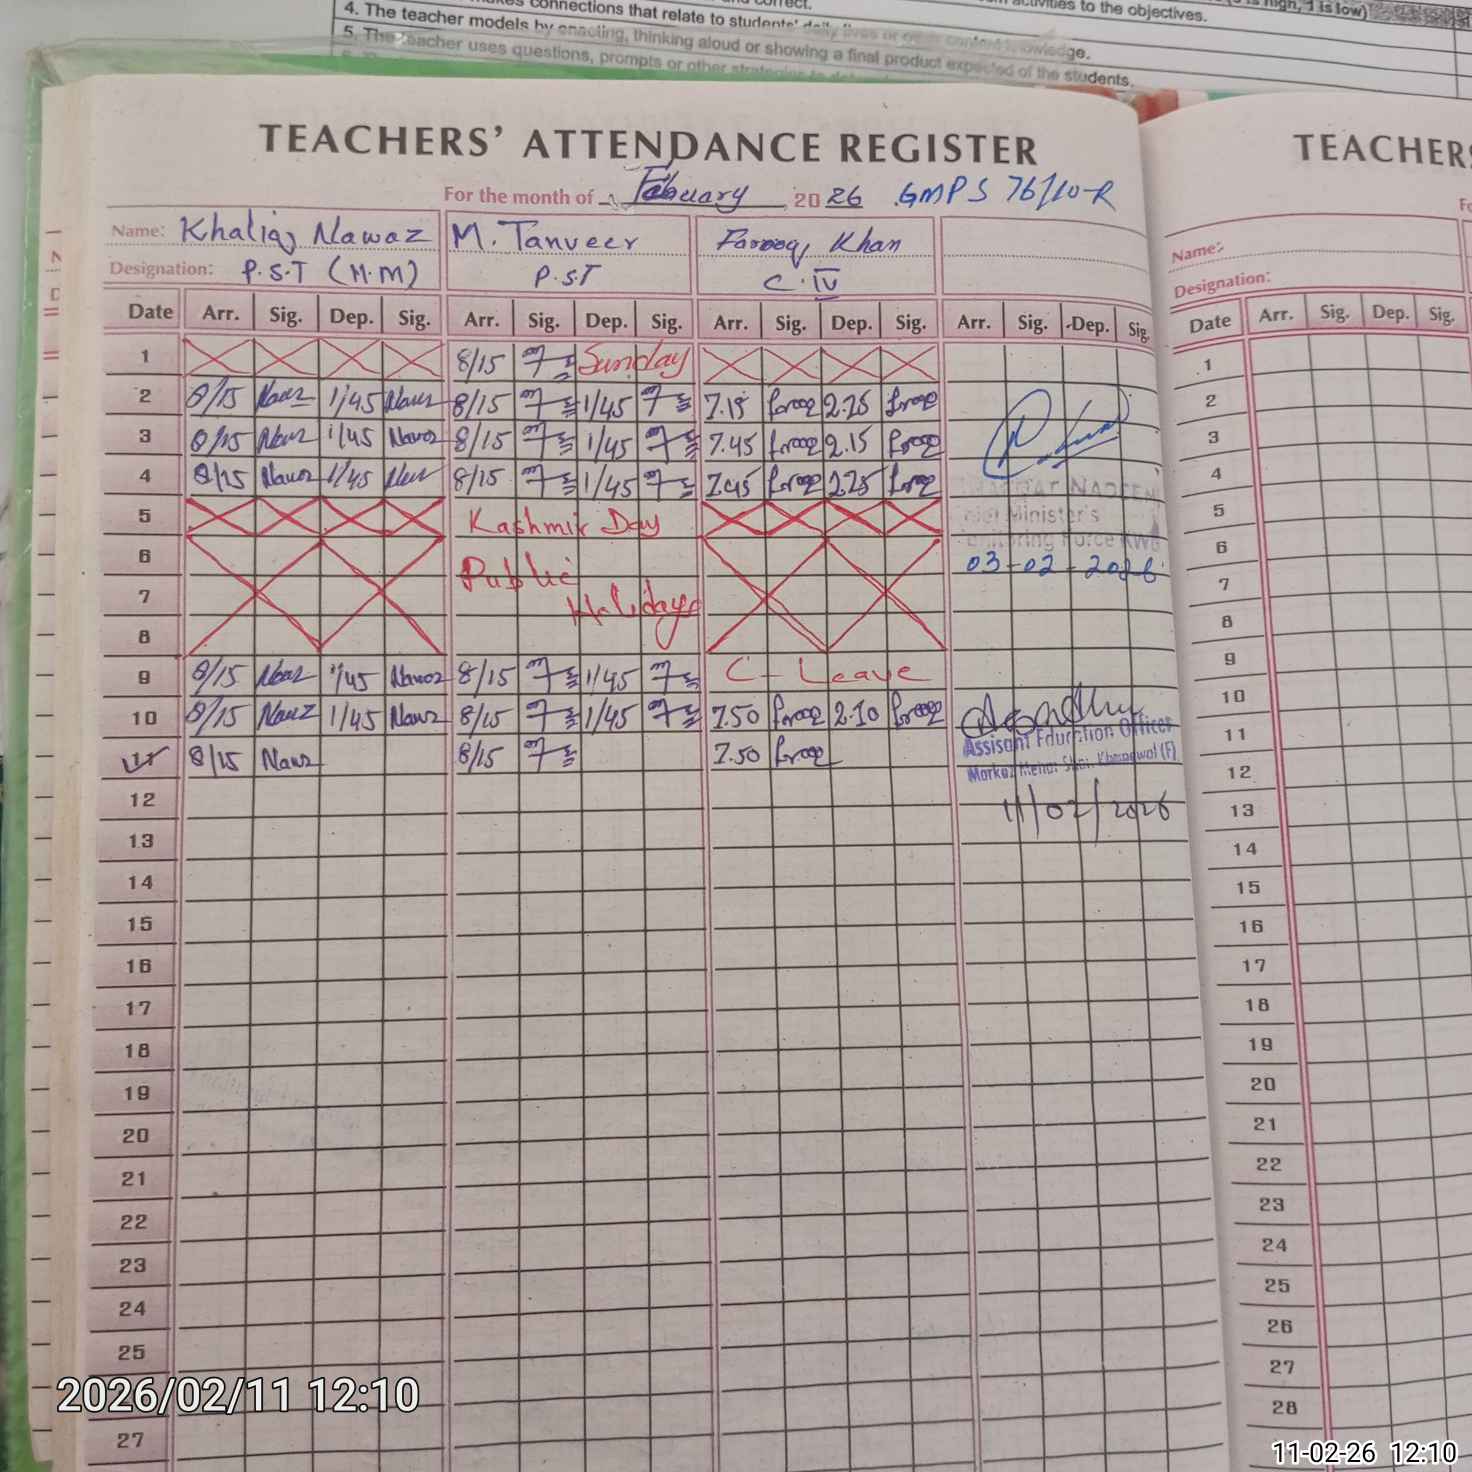 4. The teacher models by enacting, thinking aloud or showing a final product expected of the students.
5. The teacher uses questions, prompts or other strategies to
TEACHERS' ATTENDANCE REGISTER
For the month of February 2026 GMPS 76/10-R
Name: Khaliq Nawaz M. Tanveer Farooq Khan
Designation: P.S.T (H.M) P.S.T C.IV
Date Arr. Sig. Dep. Sig. Arr. Sig. Dep. Sig. Arr. Sig. Dep. Sig. Arr. Sig. Dep. Sig.
1 8/15 Sunday
2 8/15 Nawz 1/45 Nawz 8/15 1/45 7.15 farooq 2.25 farooq
3 8/15 Nawz 1/45 Nawz 8/15 1/45 7.45 farooq 2.15 farooq
4 8/15 Nawz 1/45 Nawz 8/15 1/45 7.45 farooq 2.25 farooq
5 Kashmir Day
Minister's
6 Public 03-02-2026
7 Holidays
8
9 8/15 Nawz 1/45 Nawz 8/15 1/45 C-Leave
10 8/15 Nawz 1/45 Nawz 8/15 1/45 7.50 farooq 2.10 farooq
Assisant Education Officer
11 8/15 Nawz 8/15 7.50 farooq
12
11/02/2026
13
14
15
16
17
18
19
20
21
22
23
24
25
27
TEACHERS
Name:
Designation:
Date Arr. Sig. Dep. Sig.
1
2
3
4
5
6
7
8
9
10
11
12
13
14
15
16
17
18
19
20
21
22
23
24
25
26
27
28
2026/02/11 12:10
11-02-26 12:10